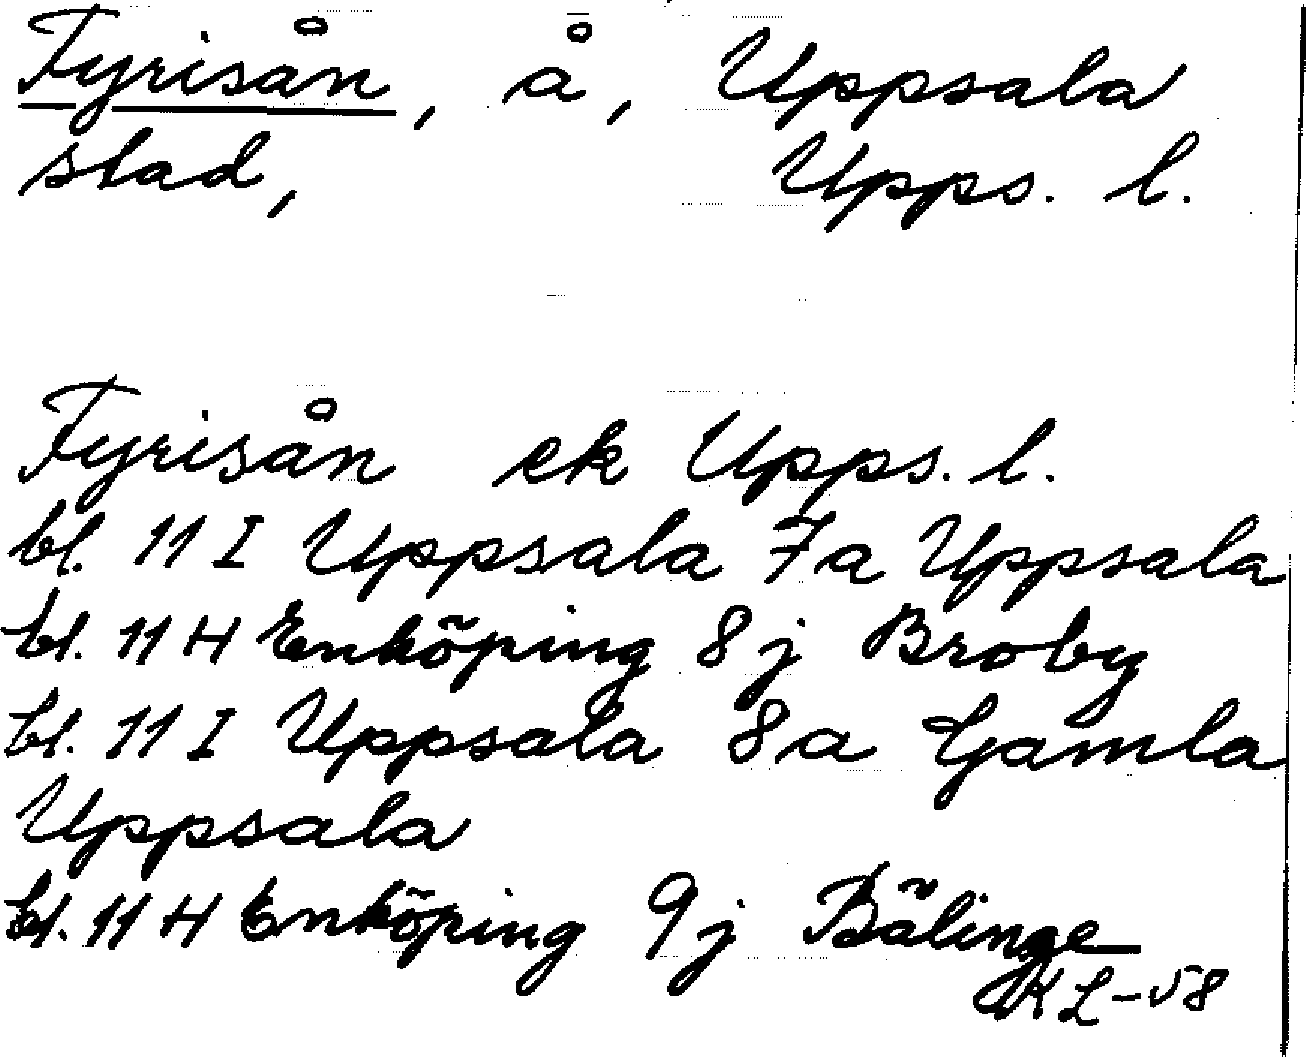 Fyrisån, å, Uppsala
stad, Upps. l.
Fyrisån ek Upps. l.
bl. 11 I Uppsala 7a Uppsala
bl. 11 H Enköping 8j Broby
bl. 11 I Uppsala 8a Gamla
Uppsala
bl. 11 H Enköping 9j Bälinge
KL-58